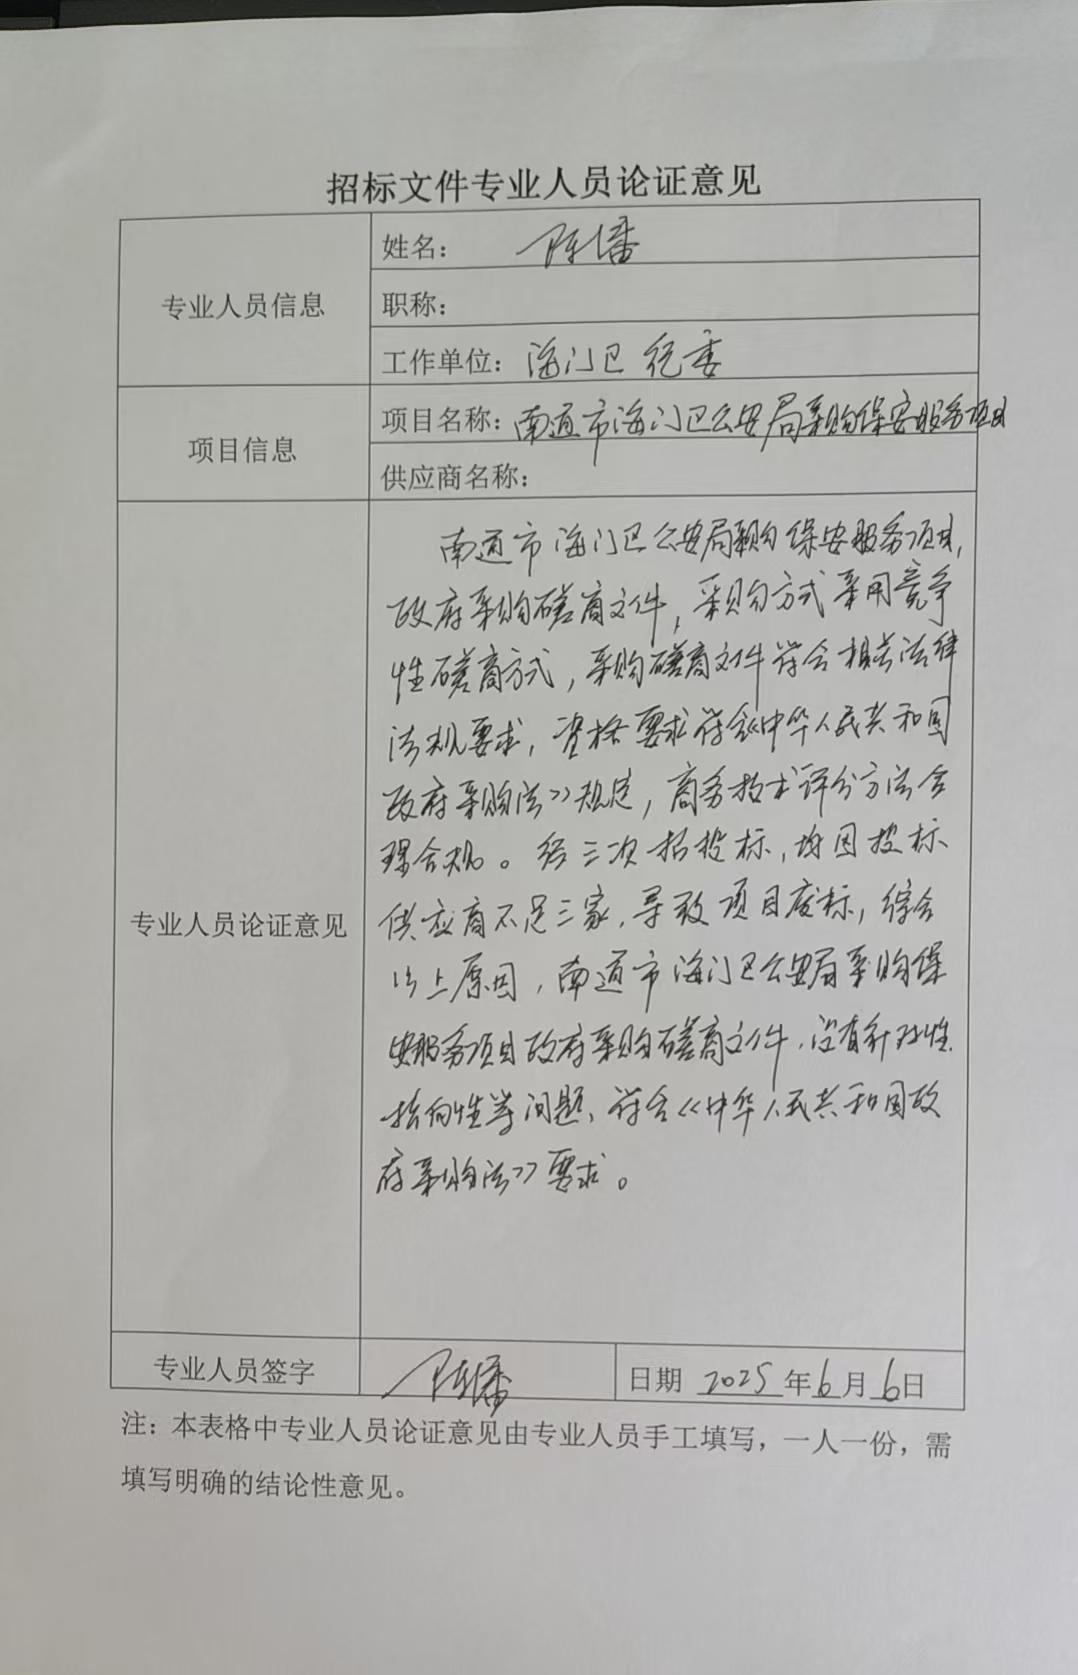 招标文件专业人员论证意见
专业人员信息
姓名： 陈
职称：
工作单位：海门区 纪委
项目信息
项目名称：南通市海门区公安局采购保安服务项目
供应商名称：
专业人员论证意见
南通市海门区公安局采购保安服务项目，
政府采购磋商文件，采购方式采用竞争
性磋商方式，采购磋商文件符合相关法律
法规要求，资格要求符合《中华人民共和国
政府采购法》规定，商务技术评分方法合
理合规。经三次招投标，均因投标
供应商不足三家，导致项目废标，综合
以上原因，南通市海门区公安局采购保
安服务项目政府采购磋商文件，没有针对性、
指向性等问题，符合《中华人民共和国政
府采购法》要求。
专业人员签字 陈
日期 2025 年 6 月 6 日
注：本表格中专业人员论证意见由专业人员手工填写，一人一份，需
填写明确的结论性意见。